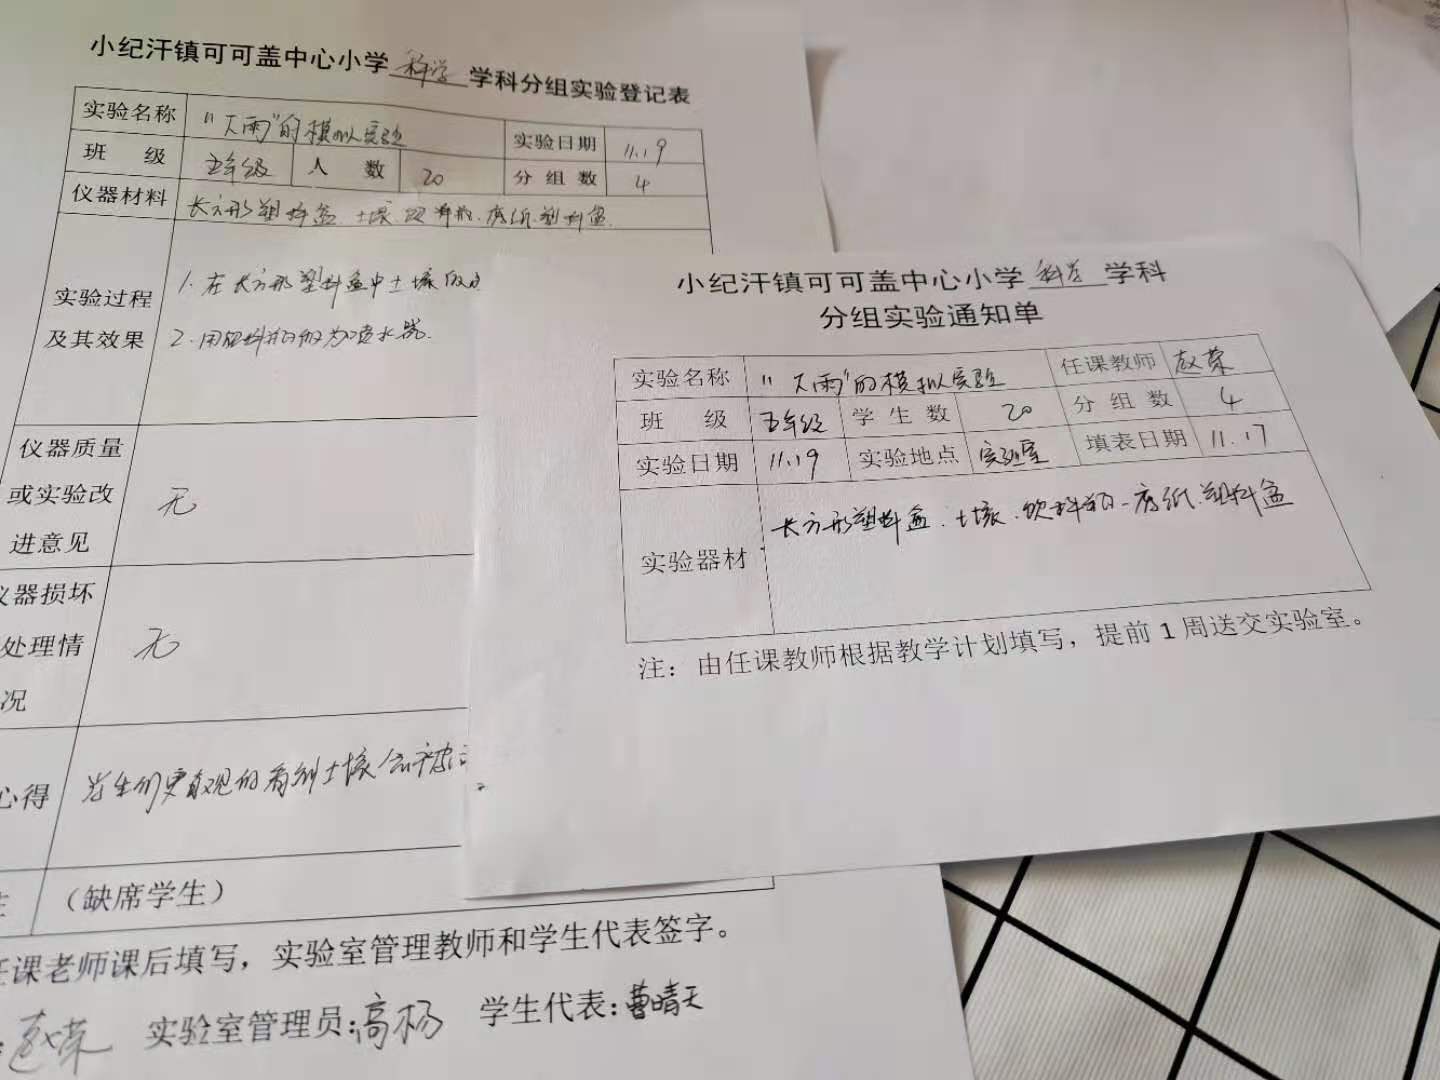 小纪汗镇可可盖中心小学 科学 学科分组实验登记表
实验名称 “下雨”的模拟实验 实验日期 11.19
班 级 五年级 人 数 20 分组数 4
仪器材料 长方形塑料盒、土壤、饮料瓶、废纸、塑料盒
实验过程
及其效果
1.在长方形塑料盒中土壤
2.用饮料瓶做为喷水器.
仪器质量
或实验改
进意见
无
仪器损坏
处理情
况
无
心得
学生们更直观的看到土壤会被
(缺席学生)
任课老师课后填写，实验室管理教师和学生代表签字。
赵荣 实验室管理员:高杨 学生代表:曹晴天
小纪汗镇可可盖中心小学 科学 学科
分组实验通知单
实验名称 “下雨”的模拟实验 任课教师 赵荣
班 级 五年级 学生数 20 分组数 4
实验日期 11.19 实验地点 实验室 填表日期 11.17
实验器材 长方形塑料盒、土壤、饮料瓶、废纸、塑料盒
注：由任课教师根据教学计划填写，提前1周送交实验室。